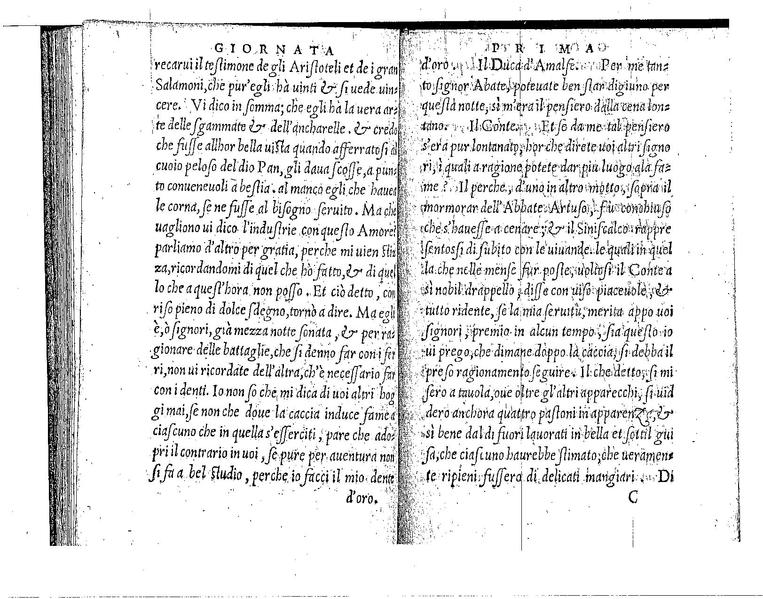 GIORNATA
recarui il testimone de gli Aristoteli et de i gran
Salamoni, che pur'egli hà uinti & si uede uin-
cere. Vi dico in somma; che egli hà la uera ar-
te delle sgammate & dell'ancharelle. & credo
che fusse allhor bella uista quando afferratosi al
cuoio peloso del dio Pan, gli daua scosse, a pun-
to conueneuoli a bestia. al manco egli che hauea
le corna, se ne fusse al bisogno seruito. Ma che
uagliono ui dico l'industrie con questo Amore?
parliamo d'altro per gratia, perche mi uien stiz
za, ricordandomi di quel che hò fatto, & di quel
lo che a quest'hora non posso. Et ciò detto, con
riso pieno di dolce sdegno, tornò a dire. Ma egli
è, ò signori, già mezza notte sonata, & per ra-
gionare delle battaglie, che si denno far con i fer
ri, non ui ricordate dell'altra, ch'è necessario far
con i denti. Io non so che mi dica di uoi altri hog
gi mai, se non che doue la caccia induce fame a
ciascuno che in quella s'esserciti, pare che ado-
pri il contrario in uoi, se pure per auentura non
si fa a bel studio, perche io facci il mio dente
d'oro.
PRIMA
d'oro. Il Duca d'Amalfe. Per me tan-
to signor Abate, poteuate ben star digiuno per
questa notte, sì m'era il pensiero dalla cena lon-
tano. Il Conte. Et se da me tal pensiero
s'era pur lontanato, hor che direte uoi altri signo
ri, i quali a ragione potete dar piu luogo a la fa-
me? Il perche, d'uno in altro motto, sopra il
mormorar dell'Abbate Artuso, fu conchiuso
che s'hauesse a cenare; & il Siniscalco rappre
sentossi di subito con le uiuande. le quali in quel
la che nelle mense fur poste, uoltosi il Conte a
sì nobil drappello, disse con uiso piaceuole, &
tutto ridente, se la mia seruitù, merita appo uoi
signori, premio in alcun tempo, sia questo io
ui prego, che dimane doppo la caccia, si debba il
preso ragionamento seguire. Il che detto, si mi
sero a tauola, oue oltre gl'altri apparecchi, si uid
dero anchora quattro pastoni in apparenza, &
sì bene dal di fuori lauorati in bella et sottil gui
sa, che ciascuno haurebbe stimato, che ueramen-
te ripieni fussero di delicati mangiari. Di
C